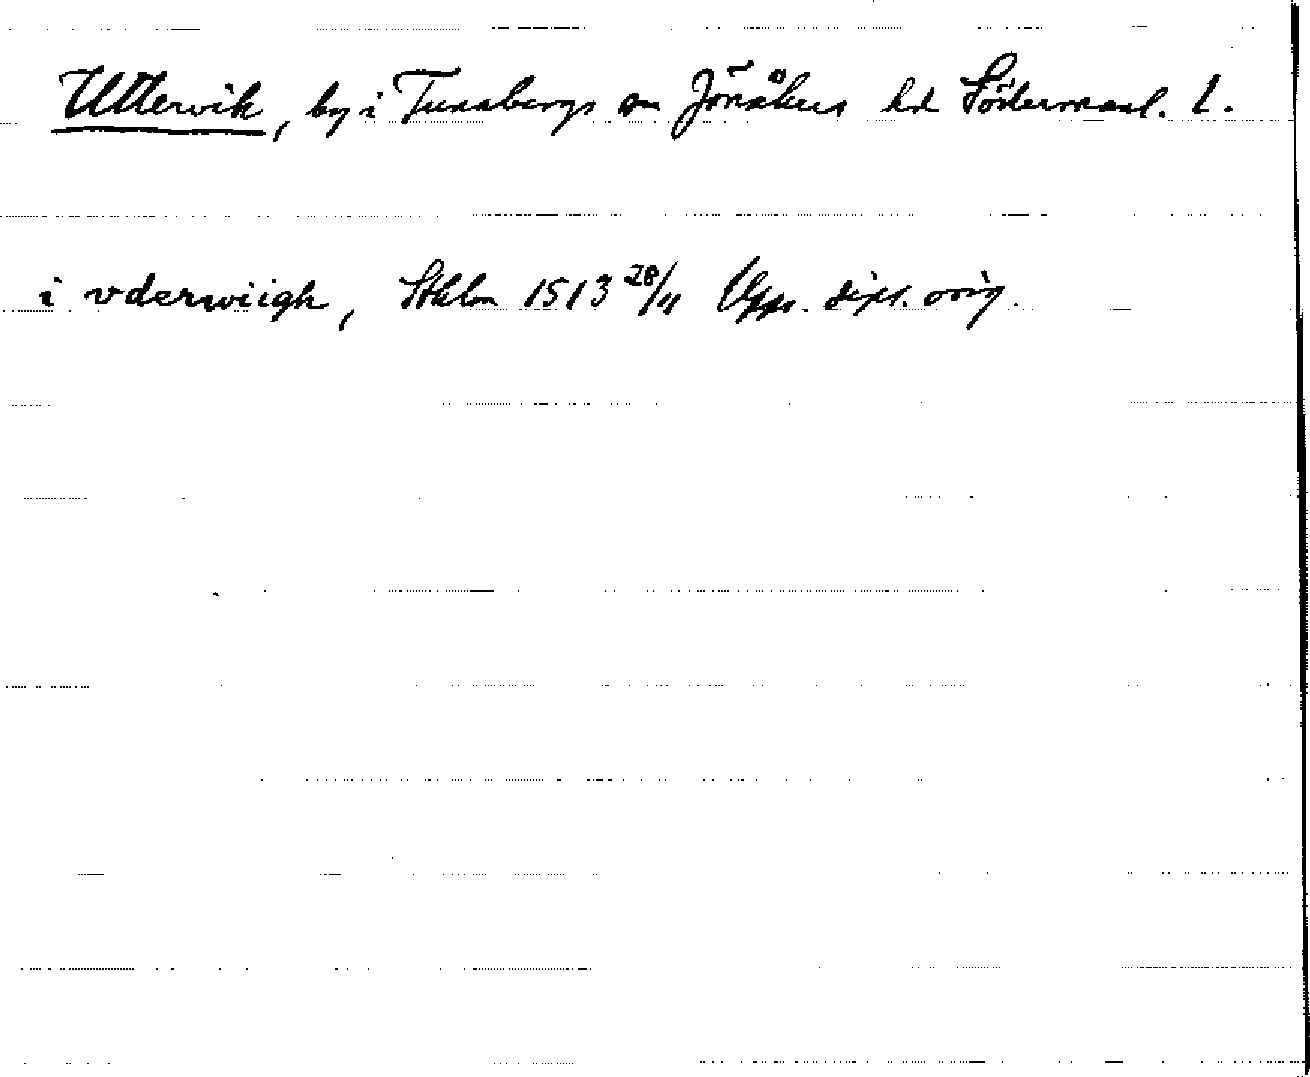 Uttervik, by i Tunabergs sn Jönåkers hd Södermanl. l.
i vderwiigh, Sthlm 1513 28/11 Upps. dipl. orig.